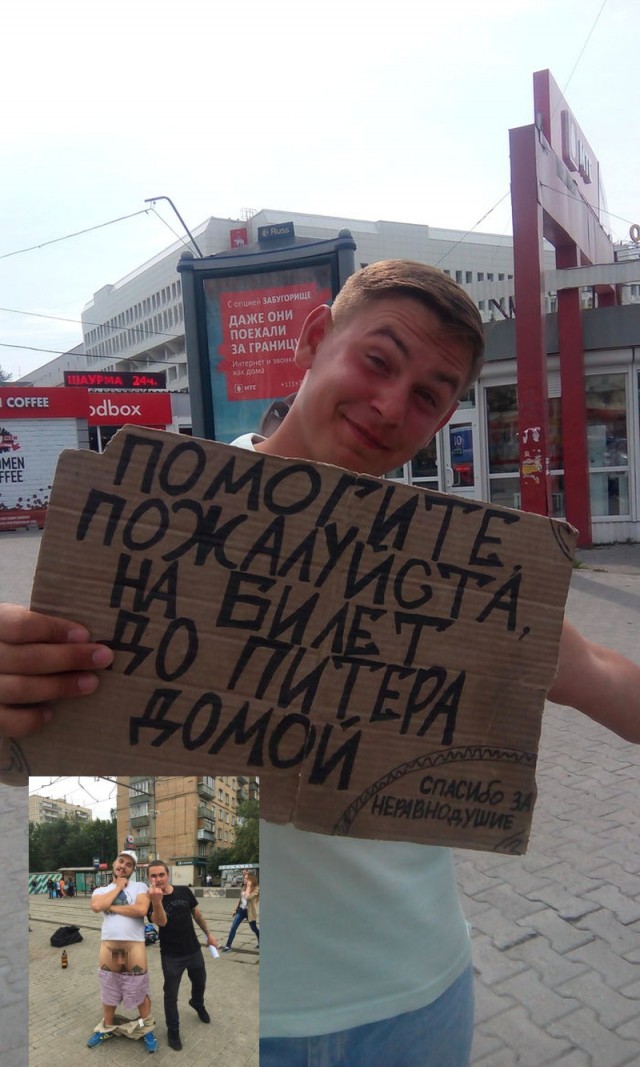 Russ
С опцией ЗАБУГОРИЩЕ
ДАЖЕ ОНИ
ПОЕХАЛИ
ЗА ГРАНИЦУ
Интернет и звонки
как дома
МТС
ШАУРМА 24ч.
COFFEE
odbox
MEN
FFEE
ПОМОГИТЕ,
ПОЖАЛУЙСТА,
НА БИЛЕТ
ДО ПИТЕРА
ДОМОЙ
СПАСИБО ЗА
НЕРАВНОДУШИЕ